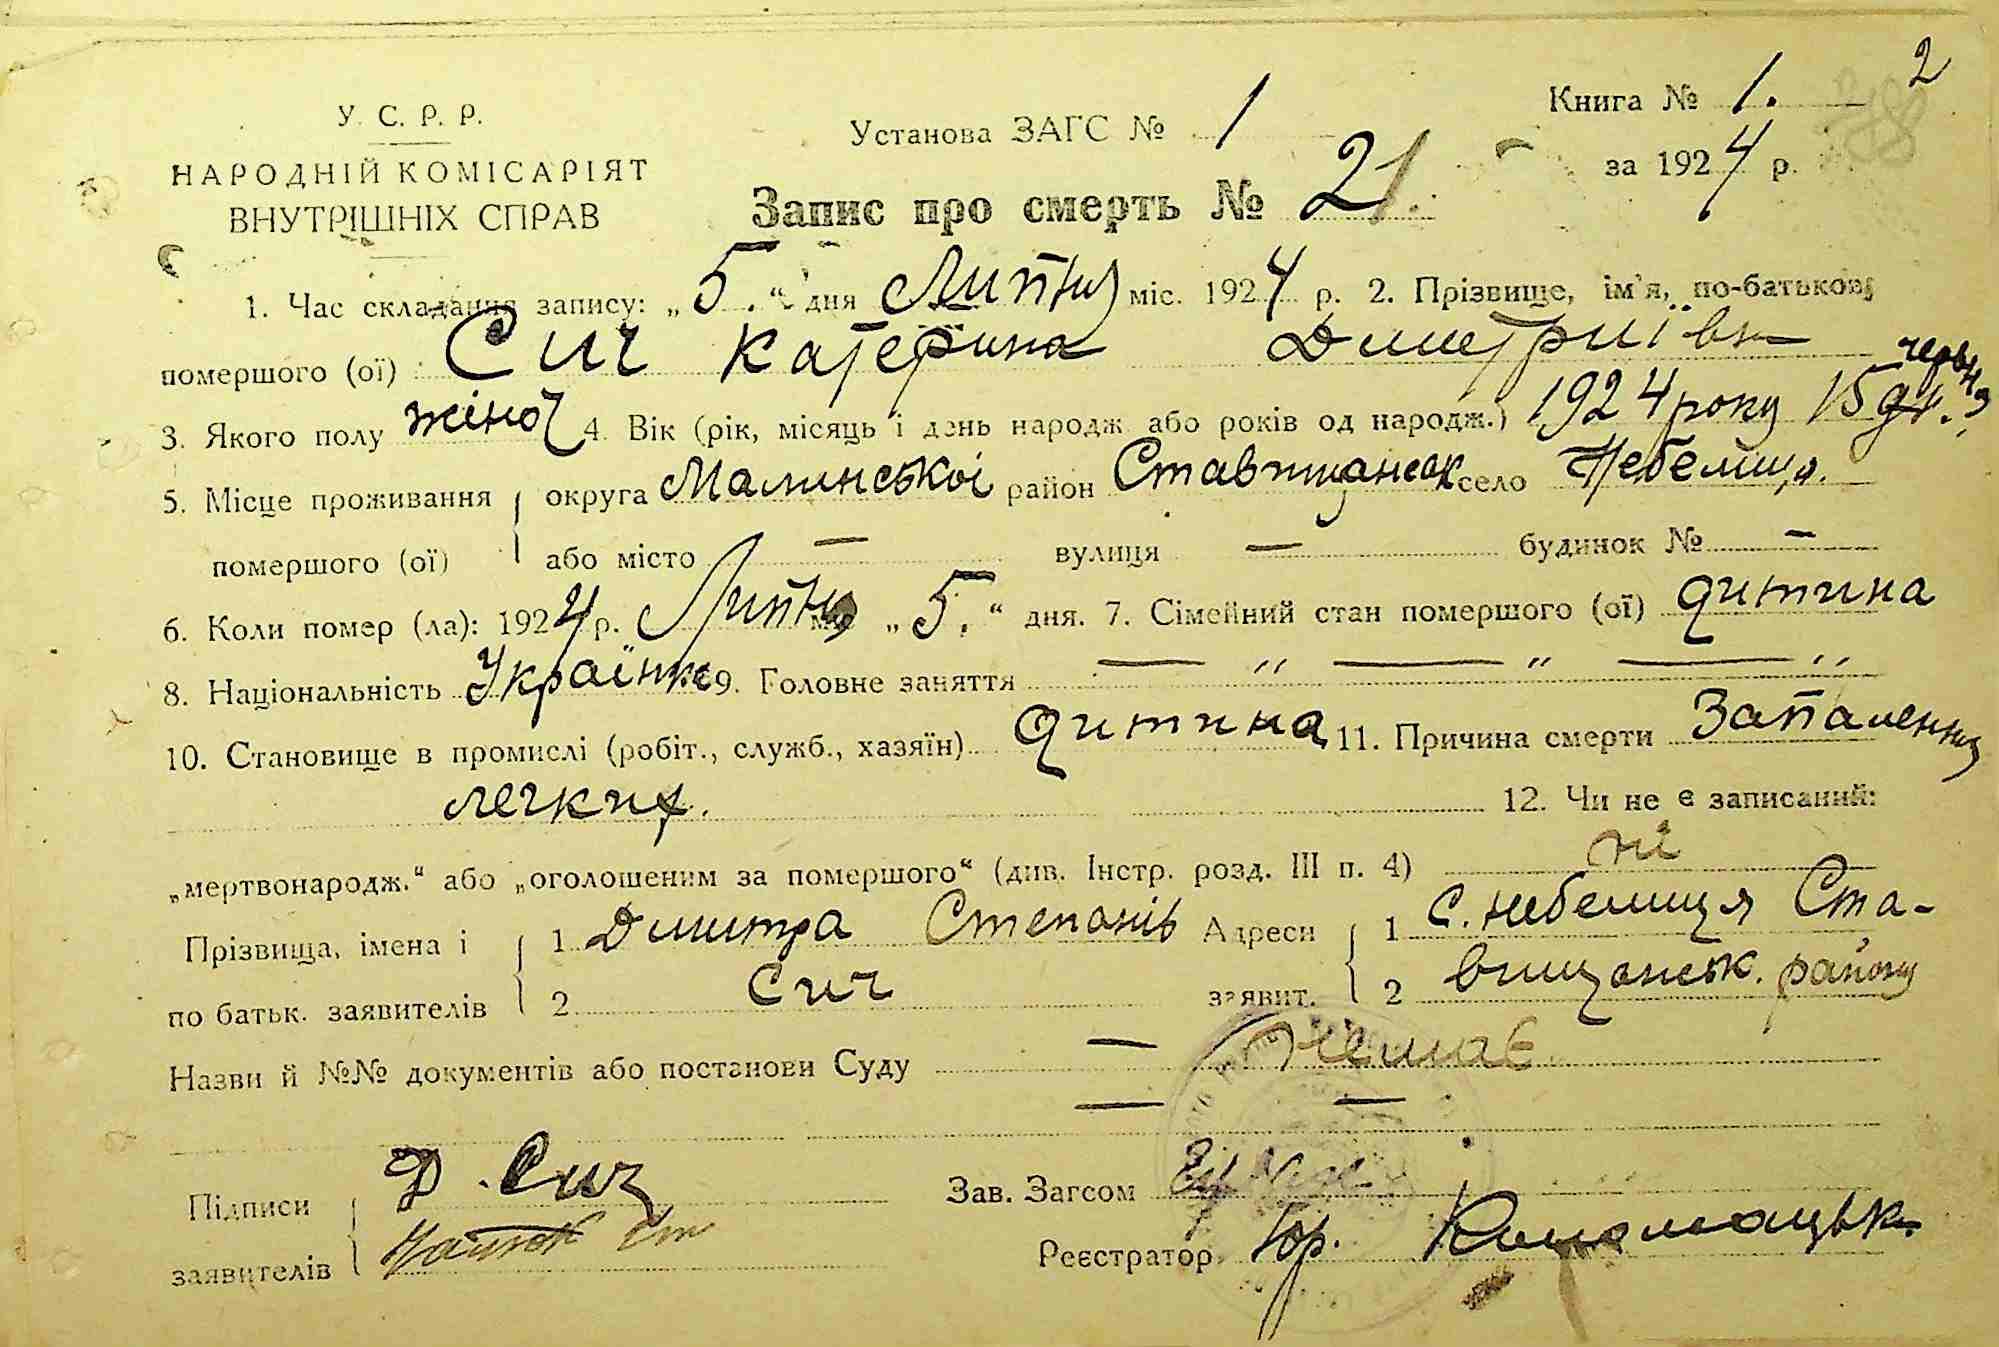 2
Книга № 1.
У. С. Р. Р.
Установа ЗАГС № 1
НАРОДНІЙ КОМІСАРІЯТ
за 1924 р.
ВНУТРІШНІХ СПРАВ
Запис про смерть № 21.
1. Час складання запису: „5.“ дня Липня міс. 1924 р. 2. Прізвище, ім'я, по-батькові
помершого (ої) Сич Катерина Дмитріївн
3. Якого полу жіноч 4. Вік (рік, місяць і день народж або років од народж.) 1924 року 15 червня
5. Місце проживання округа Малинської район Ставищанськ село Небелиця.
помершого (ої) або місто — вулиця — будинок № —
6. Коли помер (ла): 1924 р. Липня „5.“ дня. 7. Сімейний стан помершого (ої) дитина
8. Національність Українка 9. Головне заняття — „ — „ — „
10. Становище в промислі (робіт., служб., хазяїн) дитина 11. Причина смерти Запалення
легких. 12. Чи не є записаний:
„мертвонародж.“ або „оголошеним за помершого“ (див. Інстр. розд. III п. 4) ні
Прізвища, імена і 1 Дмитра Степанів Адреси 1 с. Небелиця Ста-
по батьк. заявителів 2 Сич заявит. 2 вищанськ. району
Назви й №№ документів або постанови Суду — Немає
— —
Підписи Д. Сич Зав. Загсом
заявителів Реєстратор